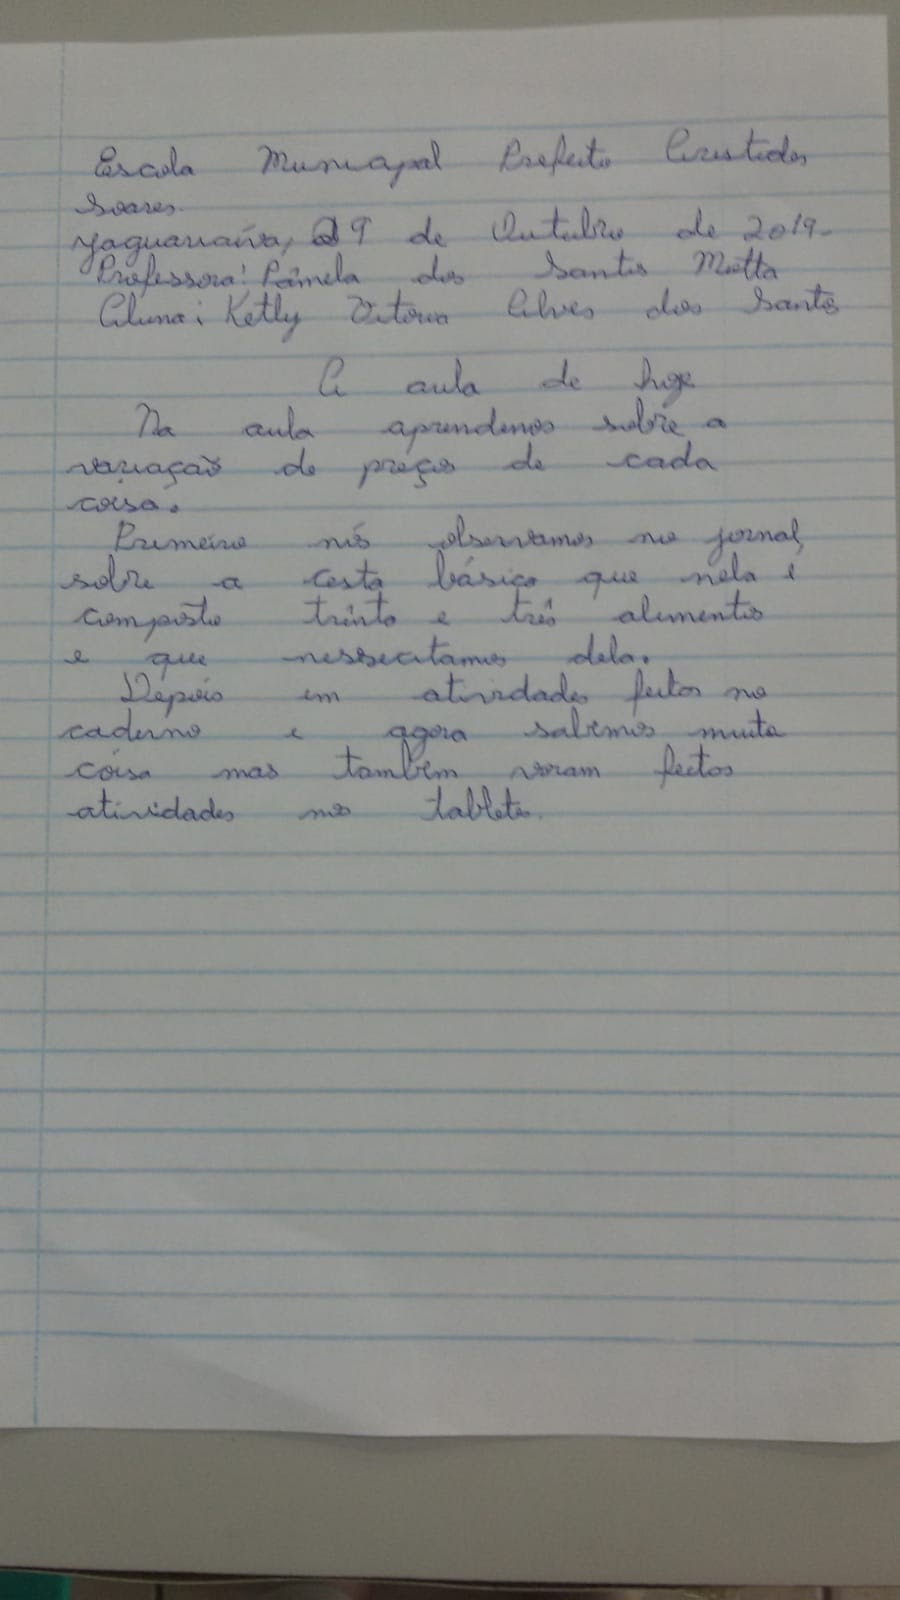 Escola Municapal Prefeito Aristides
Soares.
Jaguariaíva, 29 de Outubro de 2019.
Professora: Pâmela dos Santos Motta
Aluna: Ketly Vitoria Alves dos Santos
A aula de hoje
Na aula aprendemos sobre a
variação de preços de cada
coisa.
Primeiro nós observamos no jornal,
sobre a cesta básica que nela é
composto trinta e três alimentos
e que nessecitamos dela.
Depois em atividades feitas no
caderno e agora sabemos muita
coisa mas também voram feitas
atividades nos tabletes.